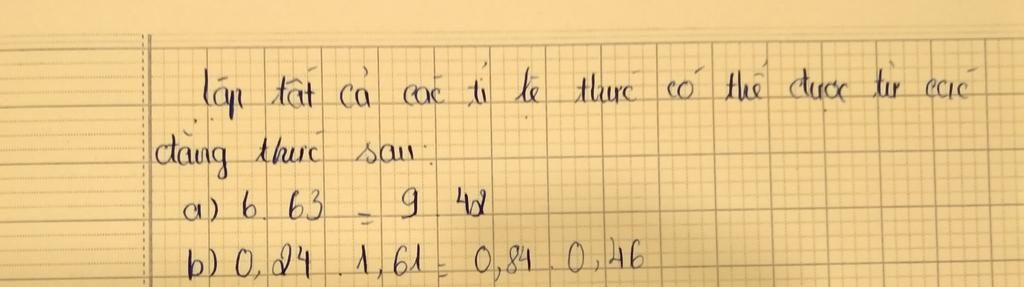 Lập tất cả các tỉ lệ thức có thể được từ các
đẳng thức sau:
a) 6. 63 = 9 . 42
b) 0,24 . 1,61 = 0,84 . 0,46